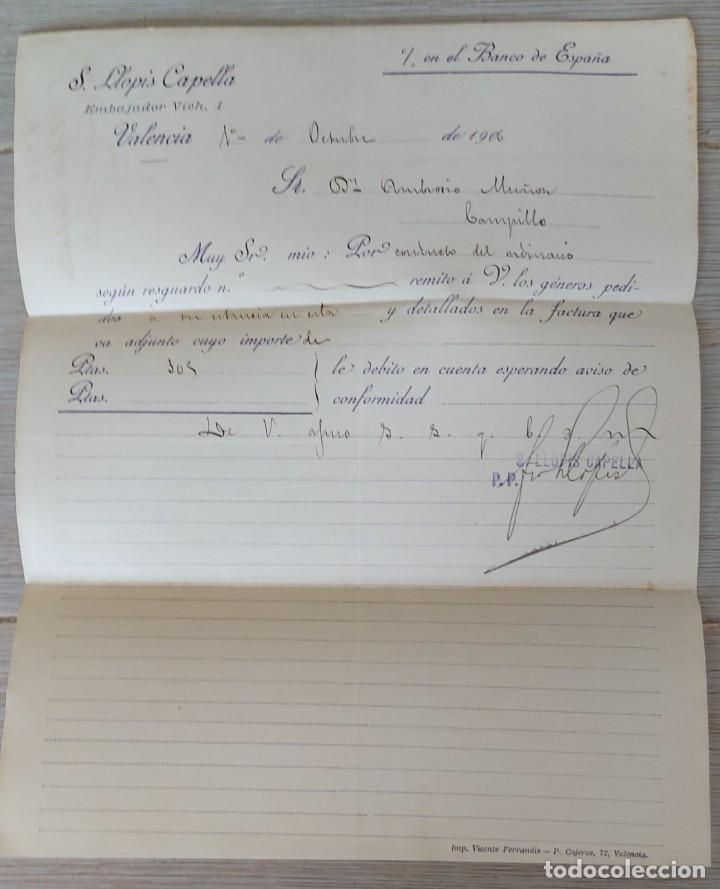 S. Llopis Capella
Embajador Vich, 1
c/. en el Banco de España
Valencia 1º de Octubre de 1906
Sr. Dn Ambrosio Muñoz
Campillo
Muy Sr. mio: Por conducto del ordinario
según resguardo n.º remito á V. los géneros pedi-
dos á mi estancia en esta y detallados en la factura que
va adjunto cuyo importe de
Ptas. 305 le debito en cuenta esperando aviso de
Ptas. conformidad
De V. afmo S. S. q. b. s. m.
S. LLOPIS CAPELLA
P. P.
Imp. Vicente Ferrandis — P. Cajeros, 72, Valencia.
todocoleccion